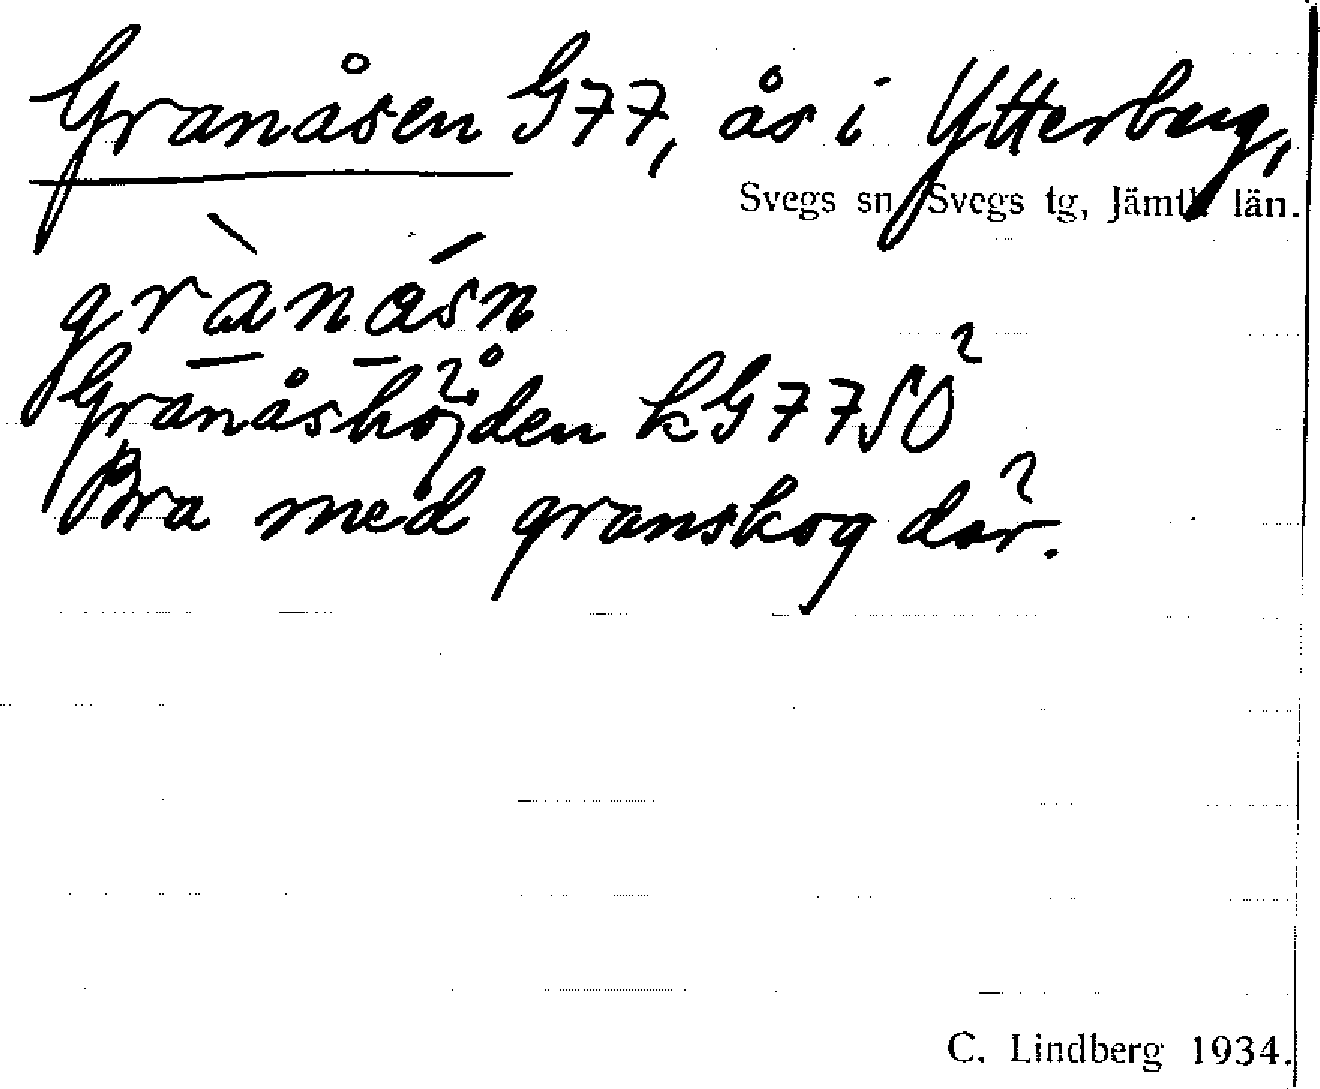 Granåsen G77, ås i Ytterberg,
Svegs sn, Svegs tg, Jämtl. län.
grànásn
Granåshöjden kG77SÖ
Bra med granskog där.
C. Lindberg 1934.